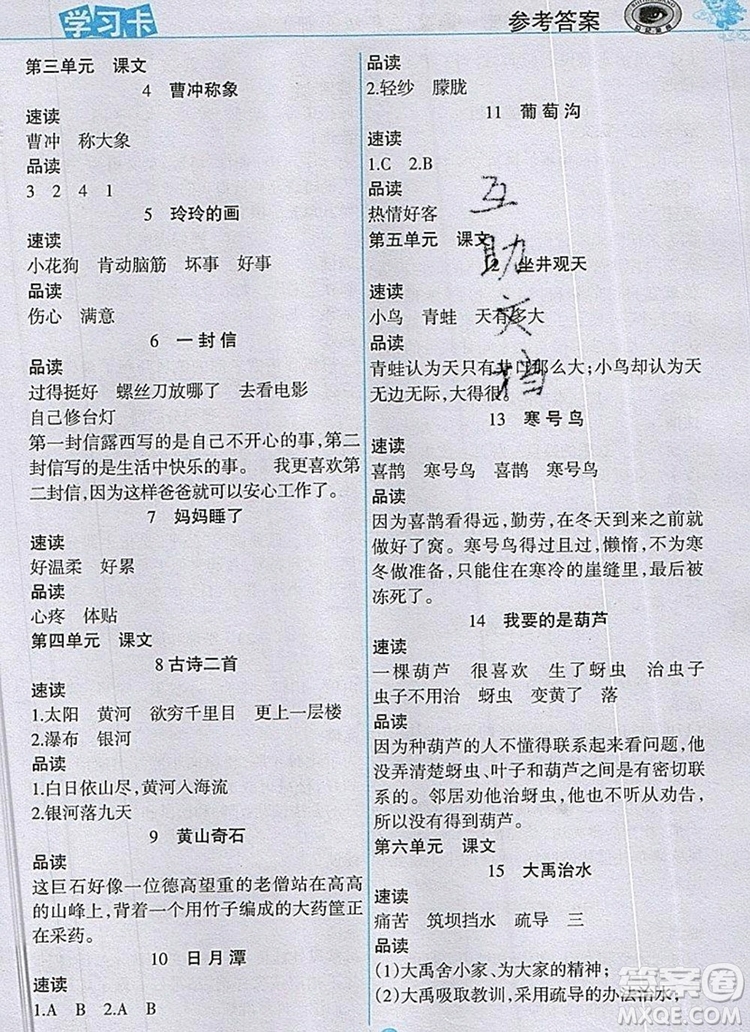 学习卡
参考答案
第三单元 课文
4 曹冲称象
速读
曹冲 称大象
品读
3 2 4 1
5 玲玲的画
速读
小花狗 肯动脑筋 坏事 好事
品读
伤心 满意
6 一封信
品读
过得挺好 螺丝刀放哪了 去看电影
自己修台灯
第一封信露西写的是自己不开心的事,第二
封信写的是生活中快乐的事。 我更喜欢第
二封信,因为这样爸爸就可以安心工作了。
7 妈妈睡了
速读
好温柔 好累
品读
心疼 体贴
第四单元 课文
8 古诗二首
速读
1.太阳 黄河 欲穷千里目 更上一层楼
2.瀑布 银河
品读
1.白日依山尽,黄河入海流
2.银河落九天
9 黄山奇石
品读
这巨石好像一位德高望重的老僧站在高高
的山峰上,背着一个用竹子编成的大药筐正
在采药。
10 日月潭
速读
1.A B 2.A B
品读
2.轻纱 朦胧
11 葡萄沟
速读
1.C 2.B
品读
热情好客
第五单元 课文
12 坐井观天
速读
小鸟 青蛙 天有多大
品读
青蛙认为天只有井口那么大;小鸟却认为天
无边无际,大得很。
13 寒号鸟
速读
喜鹊 寒号鸟 喜鹊 寒号鸟
品读
因为喜鹊看得远,勤劳,在冬天到来之前就
做好了窝。寒号鸟得过且过,懒惰,不为寒
冬做准备,只能在寒冷的崖缝里,最后被
冻死了。
14 我要的是葫芦
速读
一棵葫芦 很喜欢 生了蚜虫 有几个
虫子不用治 蚜虫 变黄了 落
品读
因为种葫芦的人不懂得联系来看问题,他
没弄清楚蚜虫、叶子和葫芦是有密切联
系的。邻居劝他治蚜虫,他却不以为然,
所以没有得到葫芦。
第六单元 课文
15 大禹治水
速读
痛苦 筑坝挡水 疏导 三
品读
(1)大禹舍小家、为大家的精神;
(2)大禹吸取教训,采用疏导的办法治水;
互
助
文
档
答案圈
MXQE.COM